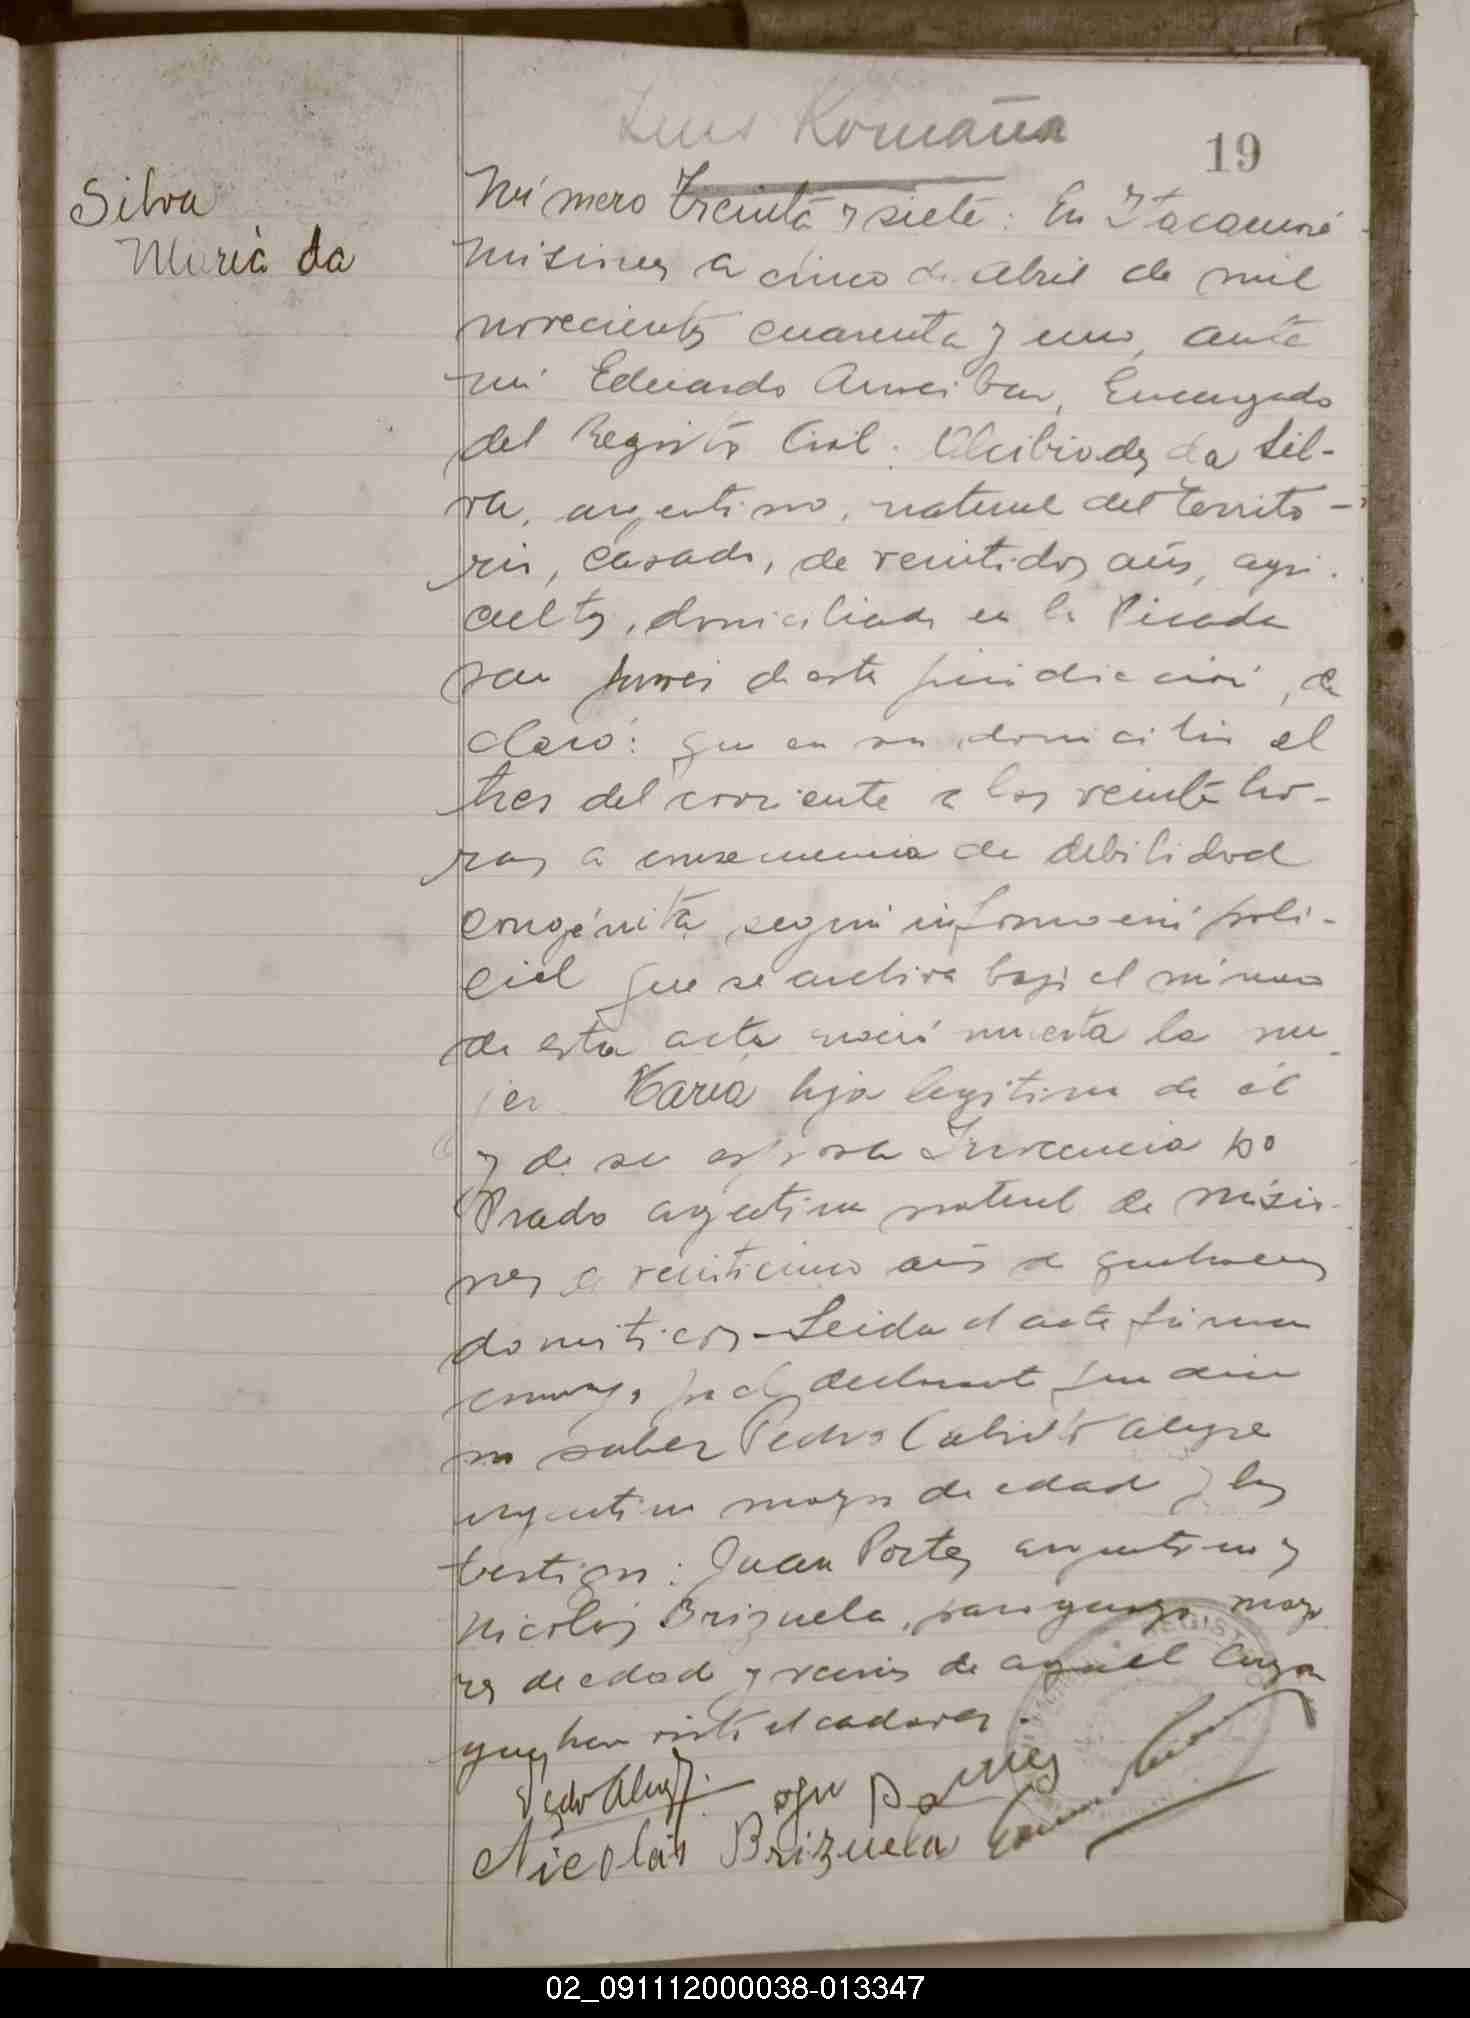 Luis Romaña
19
Silva
Maria da
Número Treinta y siete: En Itacaruaré
Misiones a cinco de Abril de mil
novecientos cuarenta y uno, ante
mi Eduardo Encargado
del Registro Civil. Alcibiades da Sil-
va, argentino, natural del Territo-
rio, casado, de veintidos años, agri-
cultor, domiciliado en la Picada
san Javier de esta jurisdicción, de
claró: que en su domicilio el
tres del corriente a las veinte ho-
ras a consecuencia de debilidad
congénita, según información poli-
cial que se archiva bajo el número
de esta acta nació muerta la mu-
jer Maria hija legitima de él
y de su esposa Inocencia do
Prado argentina natural de Misio-
nes de veinticinco años de quehaceres
domésticos - Leida el acta firma
conmigo, por el declarante que dice
no saber Pedro Alegre
argentino mayor de edad y los
testigos: Juan Portes argentino y
Nicolás Brizuela, paraguayo, mayo
res de edad y vecinos de aquel lugar
quienes han visto el cadaver.
Pedro Aleg
Nicolás Brizuela
REGISTRO
02_091112000038-013347